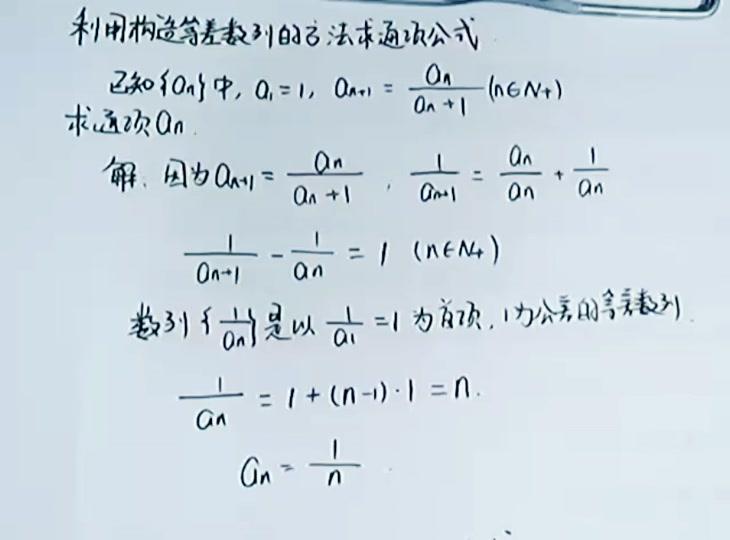 利用构造等差数列的方法求通项公式
已知{an}中, a₁=1, aₙ₊₁ = aₙ/(aₙ+1) (n∈N₊)
求通项aₙ.
解: 因为aₙ₊₁ = aₙ/(aₙ+1) , 1/aₙ₊₁ = aₙ/aₙ + 1/aₙ
1/aₙ₊₁ - 1/aₙ = 1 (n∈N₊)
数列{1/aₙ}是以 1/a₁ =1 为首项, 1为公差的等差数列.
1/aₙ = 1+(n-1)·1 = n.
aₙ = 1/n